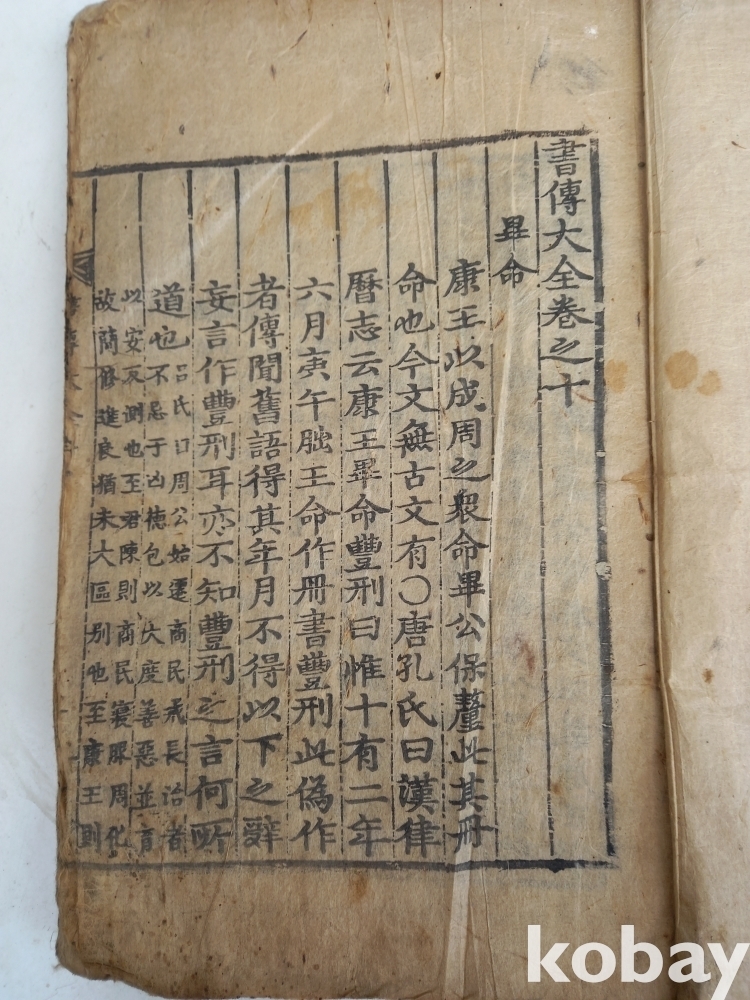 書傳大全卷之十
畢命
康王以成周之衆命畢公保釐此其冊
命也今文無古文有○唐孔氏曰漢律
曆志云康王畢命豐刑曰惟十有二年
六月庚午朏王命作冊書豐刑此僞作
者傳聞舊語得其年月不得以下之辭
妄言作豐刑耳亦不知豐刑之言何所
道也呂氏曰周公始遷商民戒長治者
不忌于凶德包以大度善惡並育
以安反側也至君陳則商民寖服周化
故簡修進良猶未大區別也至康王則
書傳大全
kobay